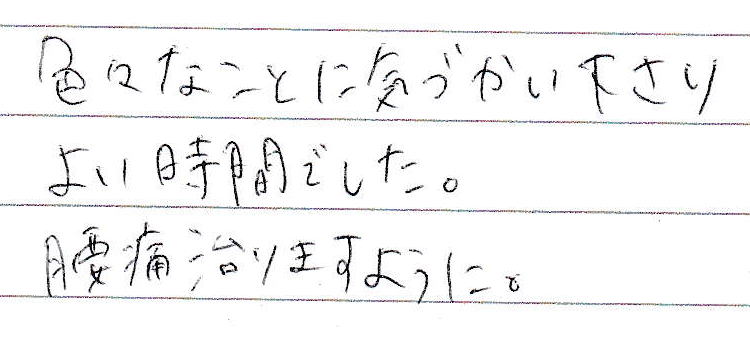 色々なことに気づかい下さり
よい時間でした。
腰痛治りますように。